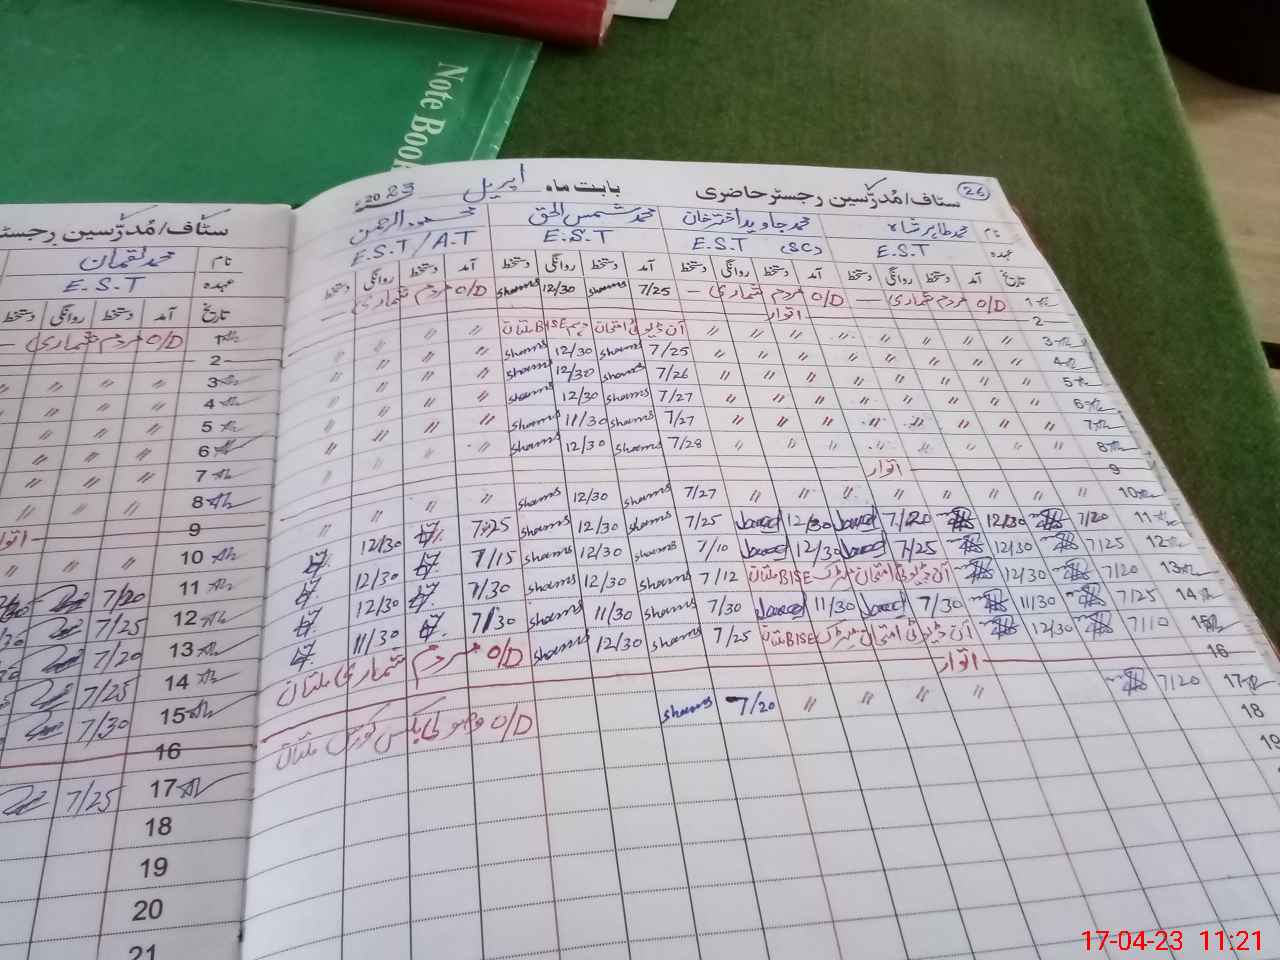 Note Book
26
ستاف/مُدرّسین رجسٹر حاضری بابت ماہ اپریل 2023ء
نام محمد طاہر شاہ محمد جاوید اختر خان محمد شمس الحق
عہدہ E.S.T E.S.T (SC) E.S.T E.S.T/A.T
تاریخ آمد دستخط روانگی دستخط آمد دستخط روانگی دستخط آمد دستخط روانگی دستخط آمد دستخط روانگی دستخط
1 O/D مردم شماری — O/D مردم شماری — 7/25 shams 12/30 shams O/D مردم شماری —
2 اتوار
3 〃 〃 〃 〃 〃 〃 〃 〃 آن ڈیوٹی امتحان BISE ملتان 〃 〃 〃 〃
4 〃 〃 〃 〃 〃 〃 〃 〃 7/25 shams 12/30 shams 〃 〃 〃 〃
5 〃 〃 〃 〃 〃 〃 〃 〃 7/26 shams 12/30 shams 〃 〃 〃 〃
6 〃 〃 〃 〃 〃 〃 〃 〃 7/27 shams 12/30 shams 〃 〃 〃 〃
7 〃 〃 〃 〃 〃 〃 〃 〃 7/27 shams 11/30 shams 〃 〃 〃 〃
8 〃 〃 〃 〃 〃 〃 〃 〃 7/28 shams 12/30 shams 〃 〃 〃 〃
9 اتوار
10 〃 〃 〃 〃 〃 〃 〃 〃 7/27 shams 12/30 shams 〃 〃 〃 〃
11 7/20 12/30 7/20 Javed 12/30 Javed 7/25 shams 12/30 shams 7:25 12/30
12 7/25 12/30 7/25 Javed 12/30 Javed 7/10 shams 12/30 shams 7/15 12/30
13 7/20 12/30 آن ڈیوٹی امتحان میٹرک BISE ملتان 7/12 shams 12/30 shams 7/30 12/30
14 7/25 11/30 7/30 Javed 11/30 Javed 7/30 shams 11/30 shams 7/30 11/30
15 7/10 12/30 آن ڈیوٹی امتحان میٹرک BISE ملتان 7/25 shams 12/30 shams O/D مردم شماری ملتان
16 اتوار
17 7/20 〃 〃 〃 〃 7/20 shams O/D ملتان
18
19
ستاف/مُدرّسین رجسٹر
نام محمد لقمان
عہدہ E.S.T
تاریخ آمد دستخط روانگی دستخط
1 O/D مردم شماری —
2
3 〃 〃 〃 〃
4 〃 〃 〃 〃
5 〃 〃 〃 〃
6 〃 〃 〃 〃
7 〃 〃 〃 〃
8 〃 〃 〃 〃
9 اتوار
10 〃 〃 〃 〃
11 7/20
12 7/25
13 7/20
14 7/25
15 7/30
16
17 7/25
18
19
20
21
17-04-23 11:21